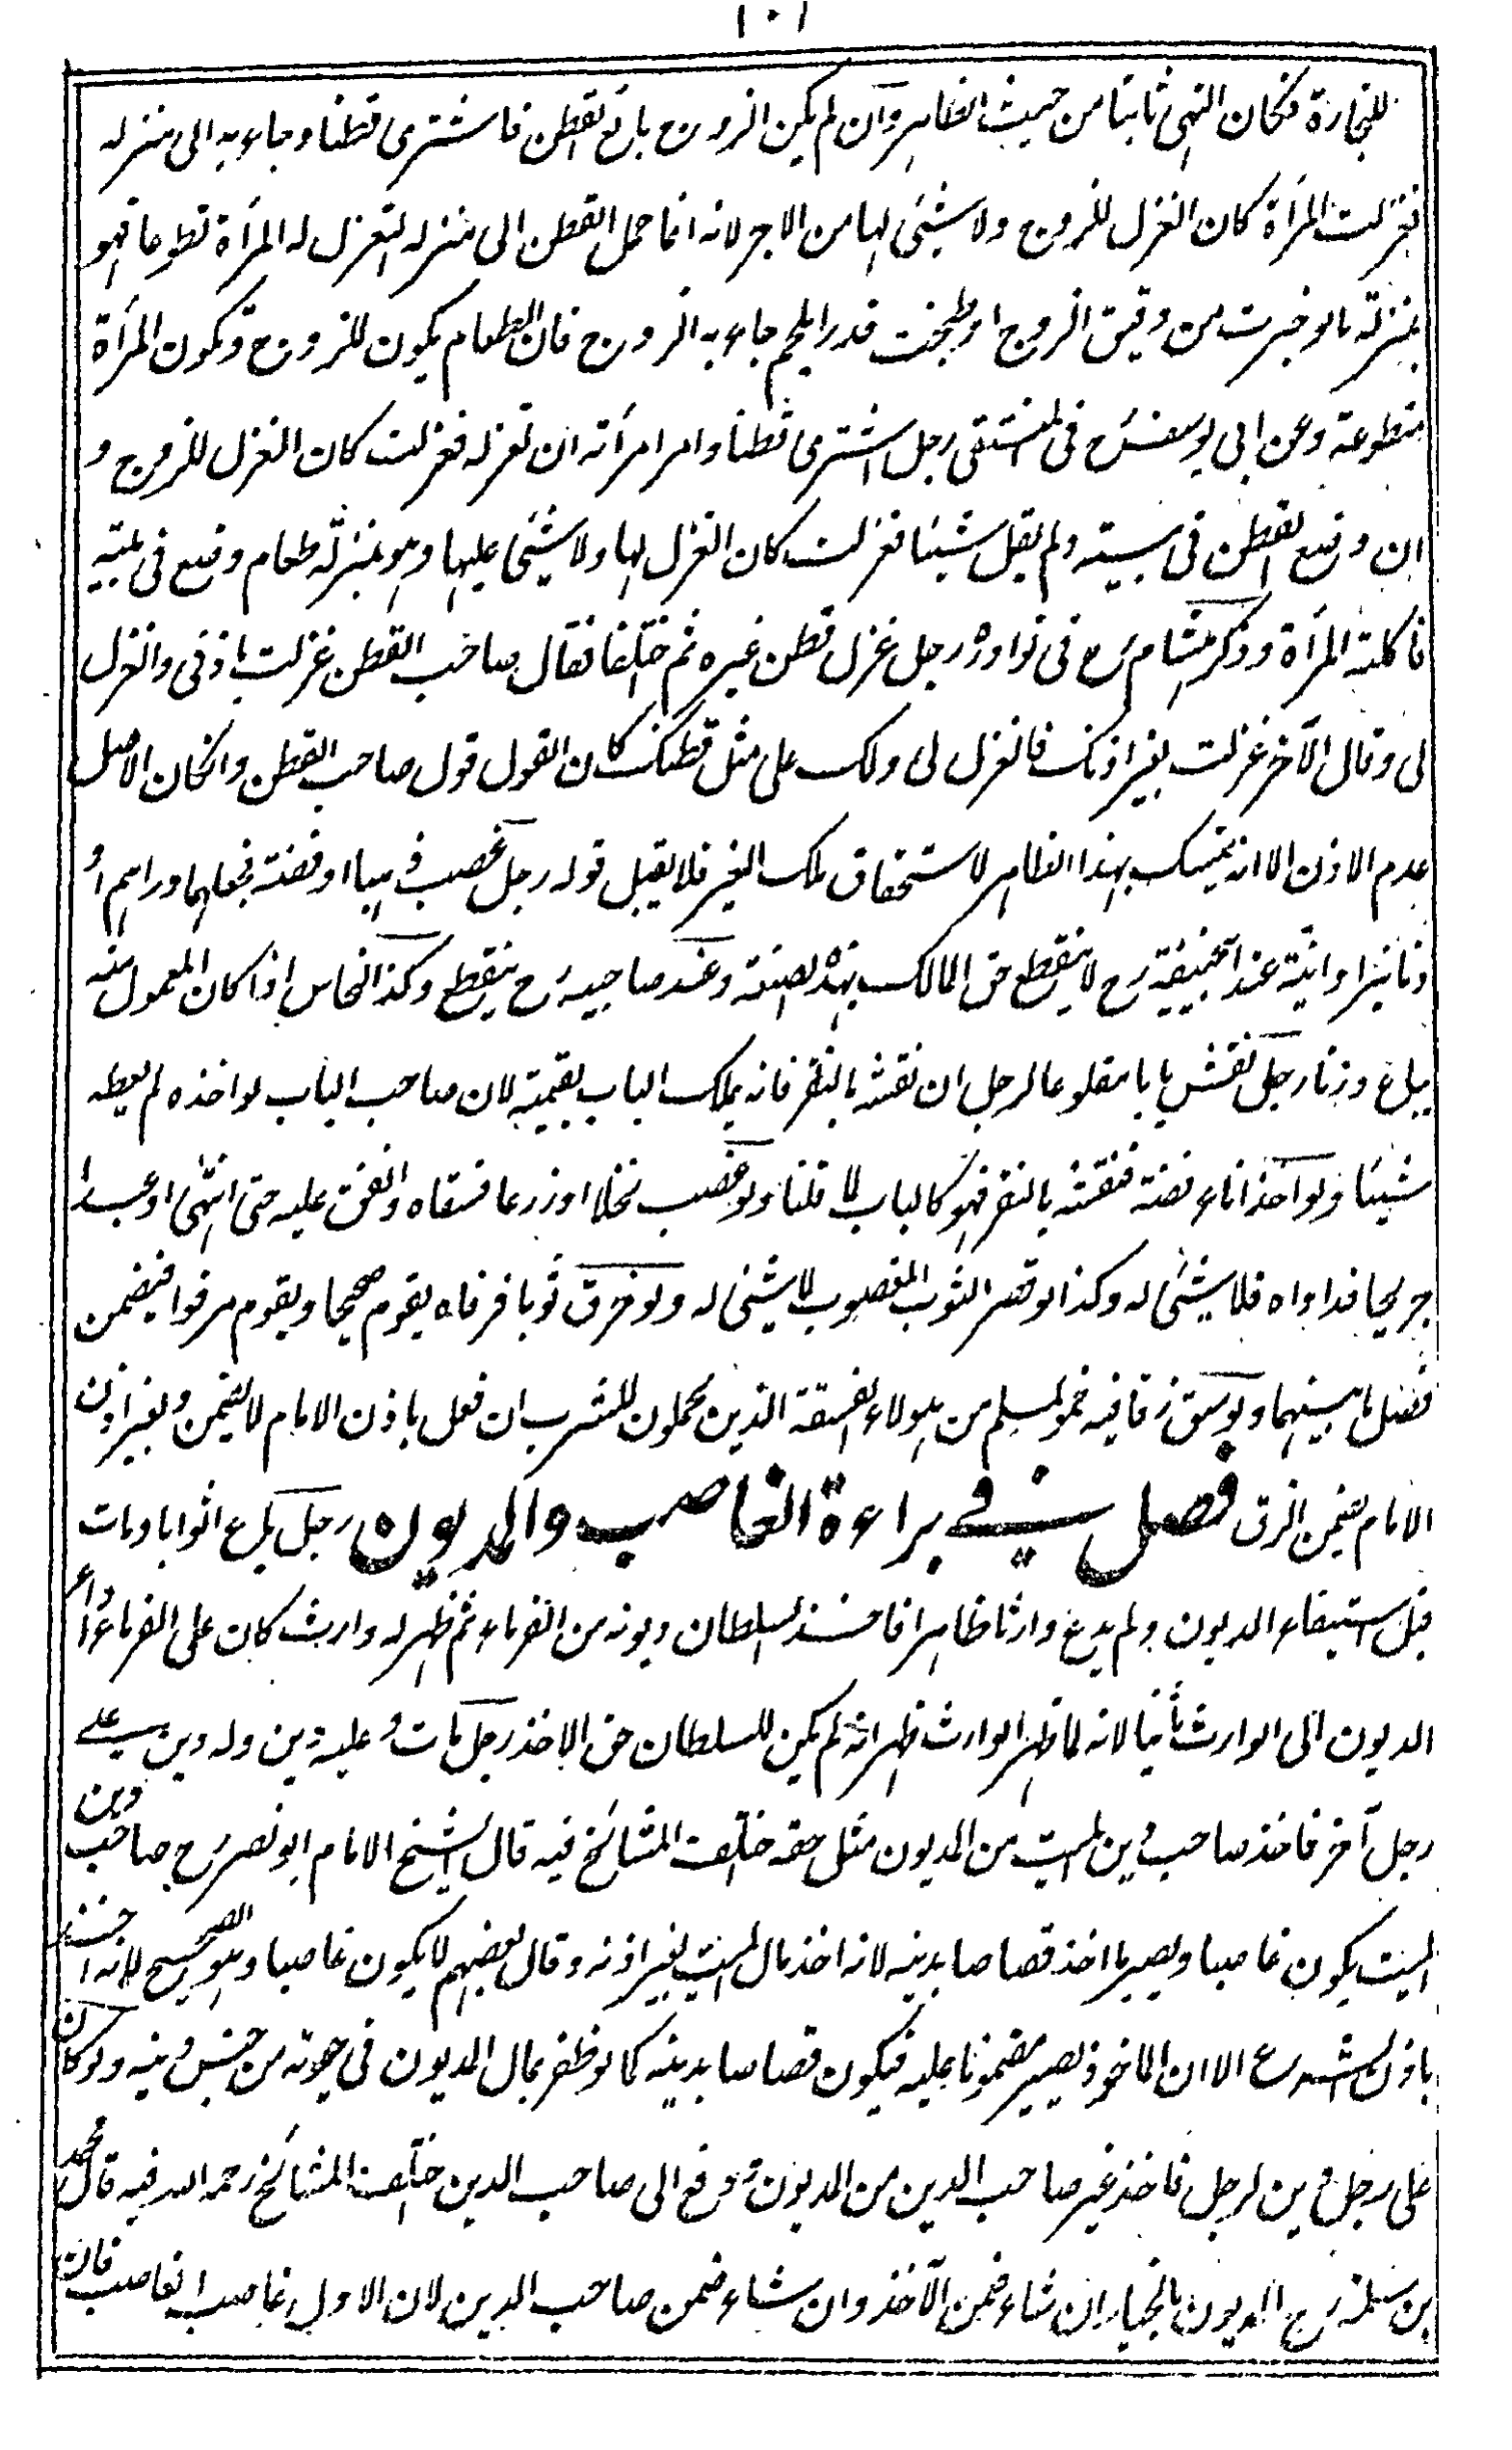 ١٠١
للتجارة فكان النهى ثابتا من حيث الظاهر وان لم يكن الزوج بائع القطن فاشترى قطنا وجاء به الى منزله
فغزلت المرأة كان الغزل للزوج ولا شيئ لها من الاجر لانه انما حمل القطن الى منزله لتغزل له المرأة تطوعا فهو
بمنزلة ما لو خبزت من دقيق الزوج او طبخت قدرا بلحم جاء به الزوج فان الطعام يكون للزوج وتكون المرأة
متطوعة وعن ابى يوسف رح فى المنتقى رجل اشترى قطنا وامر امرأته ان تغزله فغزلت كان الغزل للزوج و
ان وضع القطن فى بيته ولم يقل شيئا فغزلت كان الغزل لها ولا شيئ عليها وهو بمنزلة طعام وضع فى بيته
فاكلته المرأة وذكر هشام رح فى نوادره رجل غزل قطن غيره ثم اختلفا فقال صاحب القطن غزلت باذنى والغزل
لى وقال الآخر غزلت بغير اذنك فالغزل لى ولك على مثل قطنك كان القول قول صاحب القطن وانكان الاصل
عدم الاذن الا انه يتمسك بهذا الظاهر لاستحقاق ملك الغير فلا يقبل قوله رجل غصب ذهبا او فضة فجعلها دراهم او
دنانير او انية عند ابيحنيفة رح لا ينقطع حق المالك بهذه الصنعة وعند صاحبيه رح ينقطع وكذا النحاس اذا كان المعمول منه
يباع وزنا رجل نقش بابا مقلوعا لرجل ان نقشه بالنقر فانه يملك الباب بقيمته لان صاحب الباب لو اخذه لم يعطه
شيئا ولو اخذ اناء فضة فنقشه بالنقر فهو كالباب لما قلنا ولو غصب نخلا او زرعا فسقاه وانفق عليه حتى انتهى او عبدا
جريحا فداواه فلا شيئ له وكذا لو قصر الثوب المغصوب لا شيئ له ولو خرق ثوبا فرفاه يقوم صحيحا ويقوم مرفوا فيضمن
فضل ما بينهما ولو شق زقا فيه خمر لمسلم من هولاء الفسقة الذين يحملون للشرب ان فعل باذن الامام لا يضمن وبغير اذن
الامام يضمن الزق فصل فى براءة الغاصب والمديون رجل باع اثوابا ومات
قبل استيفاء الديون ولم يدع وارثا ظاهرا فاخذ السلطان ديونه من الغرماء ثم ظهر له وارث كان على الغرماء اداء
الديون الى الوارث ثانيا لانه لما ظهر الوارث ظهر انه لم يكن للسلطان حق الاخذ رجل مات وعليه دين وله دين على
رجل آخر فاخذ صاحب دين الميت من المديون مثل حقه اختلف المشائخ فيه قال الشيخ الامام ابو نصر رح صاحب دين
الميت يكون غاصبا ويصير ما اخذ قصاصا بدينه لانه اخذ مال الميت بغير اذنه وقال بعضهم لا يكون غاصبا وهو الصحيح لانه اخذ
باذن الشرع الا ان الماخوذ يصير مضمونا عليه فيكون قصاصا بدينه كما لو ظفر بمال المديون فى حيوته من جنس دينه ولو كان
على رجل دين لرجل فاخذ غير صاحب الدين من المديون ودفع الى صاحب الدين اختلف المشائخ رحمه الله فيه قال محمد
بن سلمة رح المديون بالخيار ان شاء ضمن الآخذ وان شاء ضمن صاحب الدين لان الاول غاصب الغاصب فان